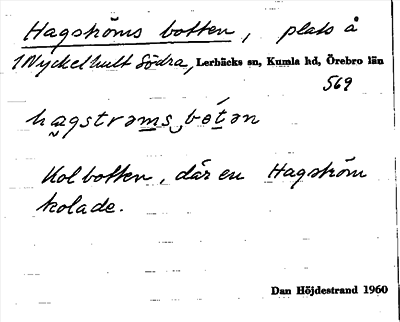 Hagströms botten, plats å
1 Nyckelhult Södra, Lerbäcks sn, Kumla hd, Örebro län
569
hagstrəms bótən
Kolbotten, där en Hagström
kolade.
Dan Höjdestrand 1960